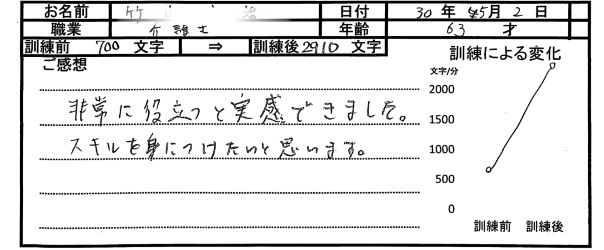 お名前 竹 治 日付 30年 5月 2日
職業 弁護士 年齢 63 才
訓練前 700 文字 ⇒ 訓練後 2910 文字
ご感想
非常に役立つと実感できました。
スキルを身につけたいと思います。
訓練による変化
文字/分
2000
1500
1000
500
0
訓練前 訓練後